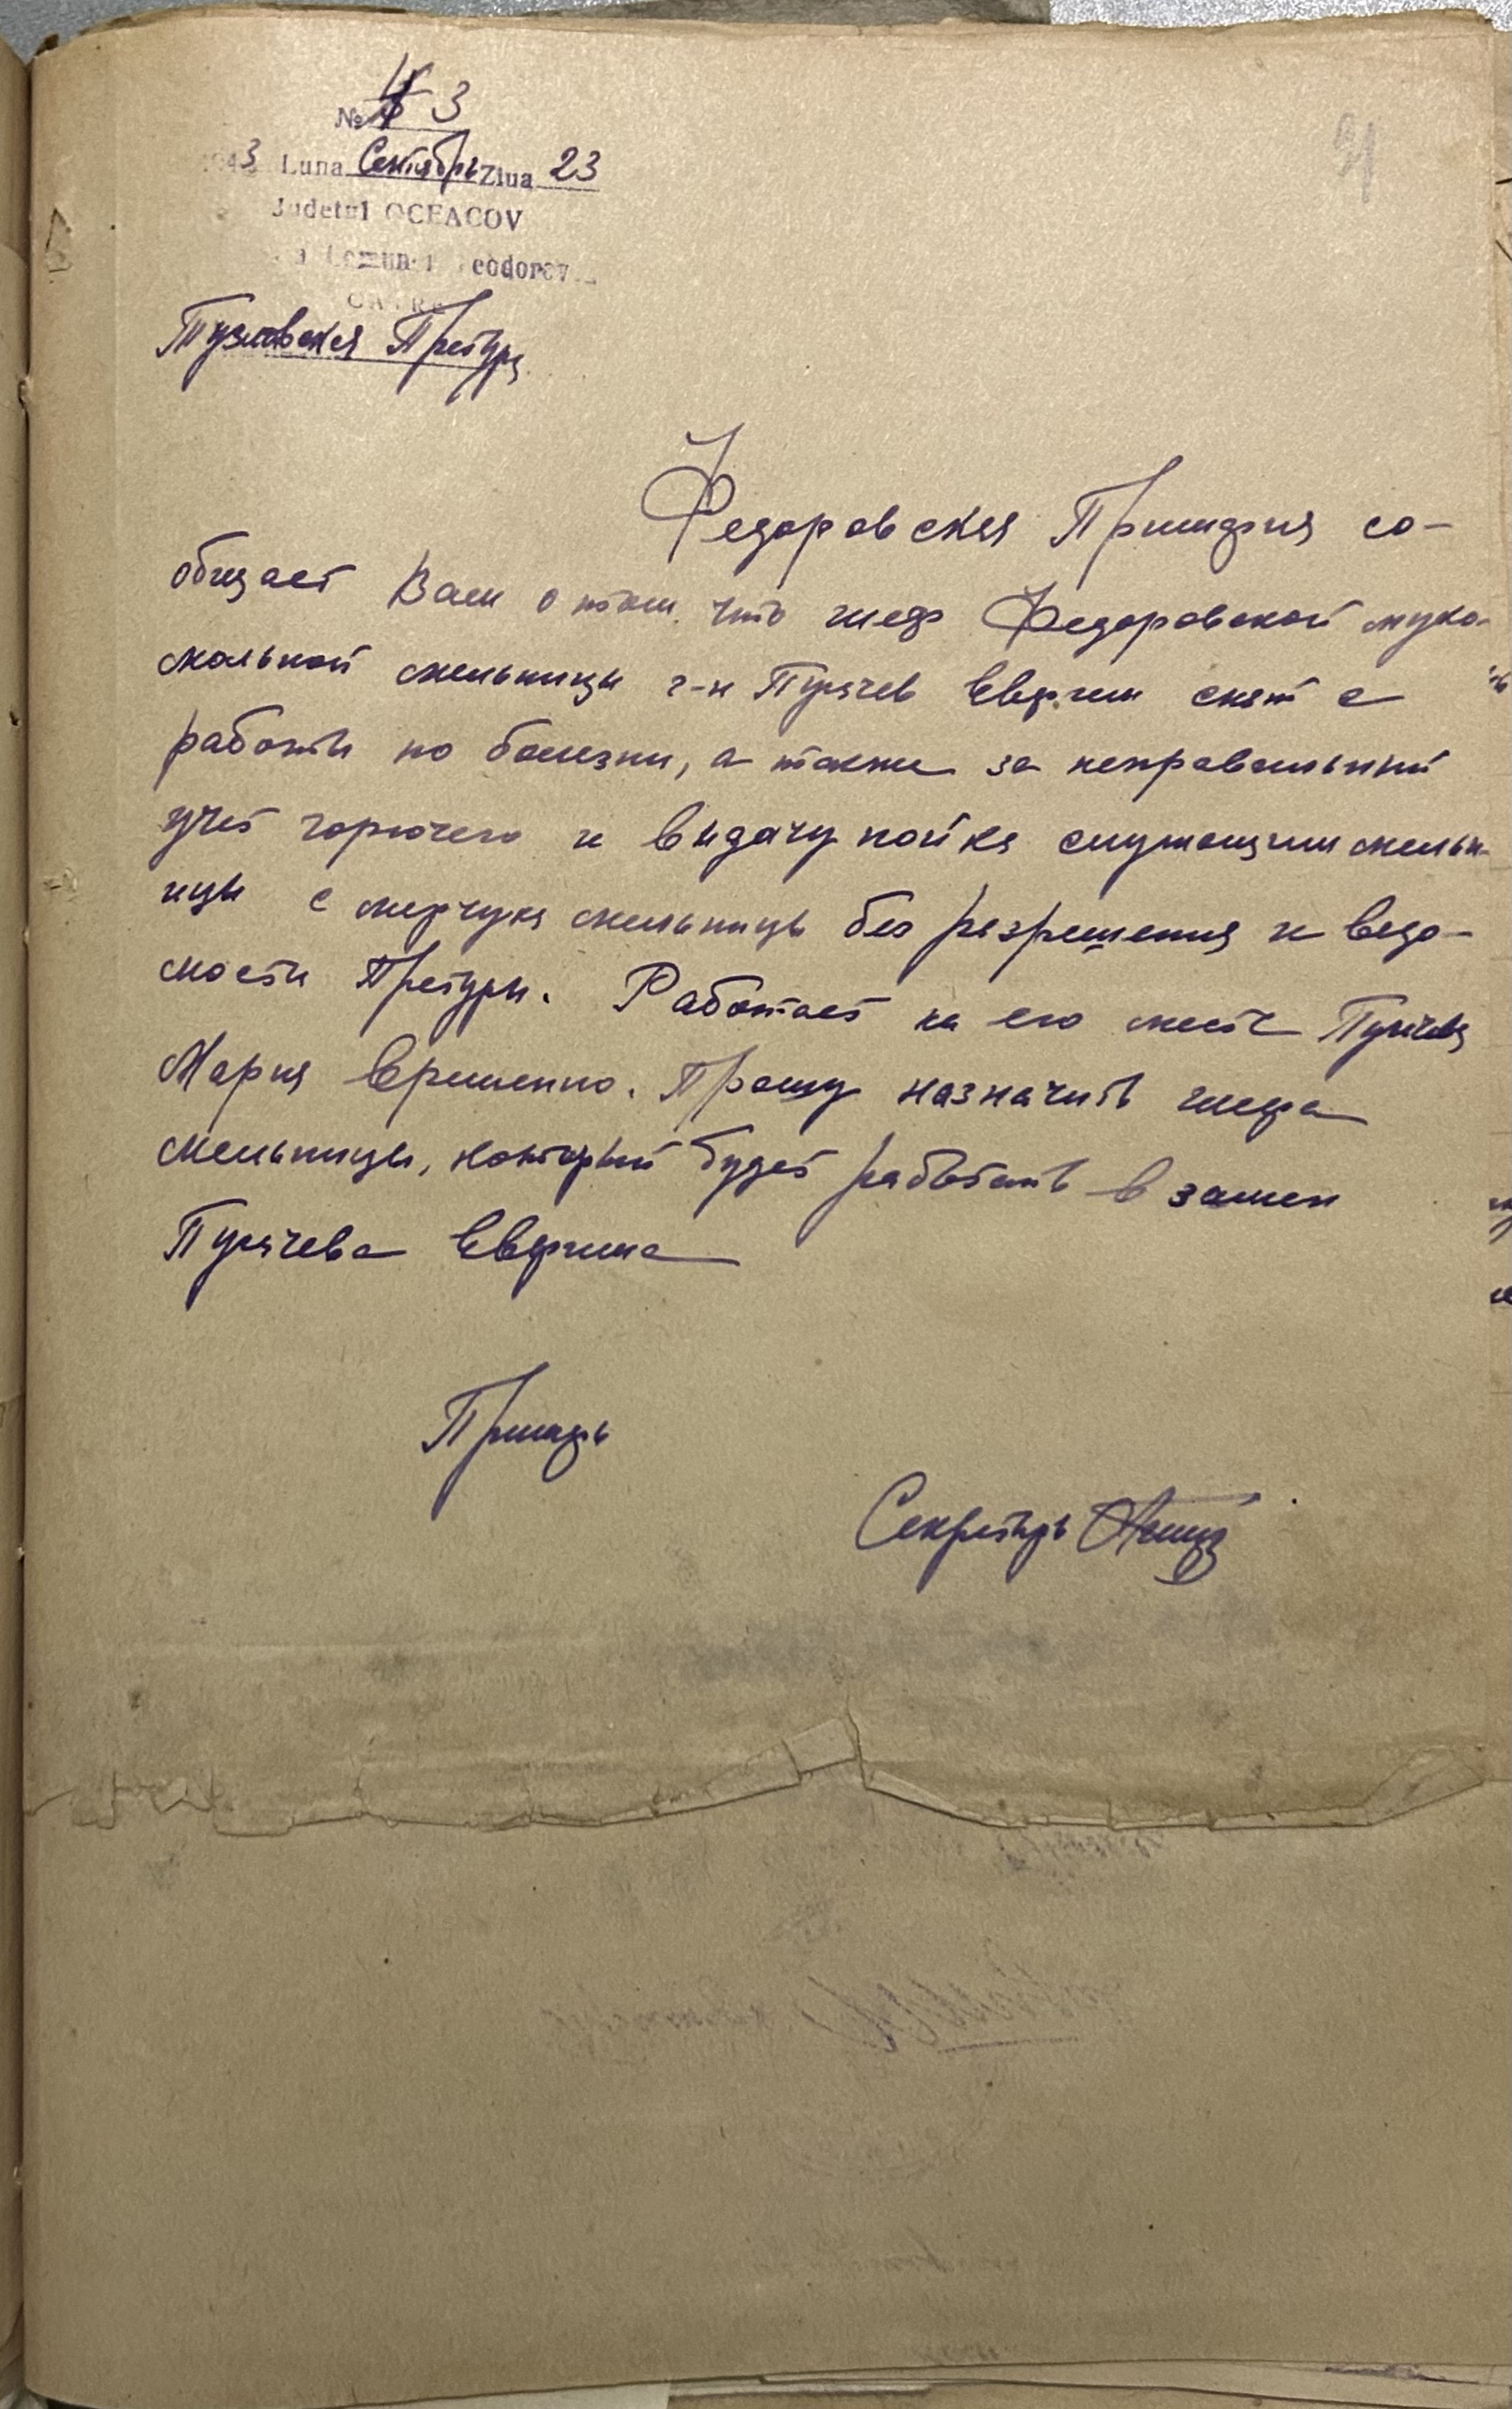 № 3
1943 Luna Сентябрь Ziua 23
Judetul OCEACOV
Comunei Teodorov
Тузловская Претура
31
Федоровская Примария со-
общает Вам о том, что шеф Федоровской муко-
мольной мельницы г-н Пугачев Ефрем снят с
работы по болезни, а также за неправильный
учет горючего и выдачу пойка служащим мельн-
ицы с мерчука мельницы без разрешения и ведо-
мости Претуры. Работает на его месте Пугачева
Мария временно. Прошу назначить шефа
мельницы, который будет работать в замен
Пугачева
Примарь
Секретарь